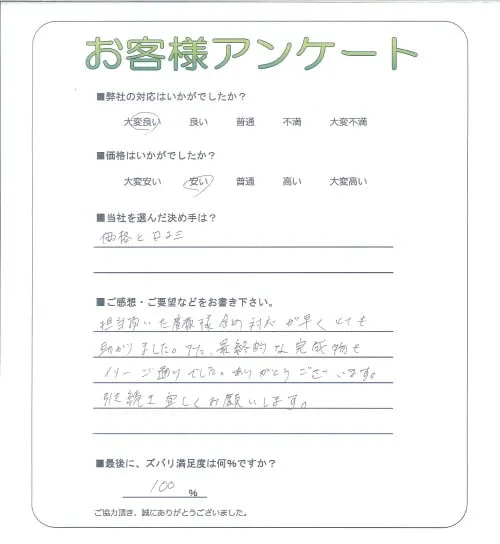 お客様アンケート
■弊社の対応はいかがでしたか?
大変良い 良い 普通 不満 大変不満
■価格はいかがでしたか?
大変安い 安い 普通 高い 大変高い
■当社を選んだ決め手は?
価格と口コミ
■ご感想・ご要望などをお書き下さい。
担当頂いた 様含め対応が早くとても
助かりました。また、最終的な完成物も
イメージ通りでした。ありがとうございます。
引き続き宜しくお願いします。
■最後に、ズバリ満足度は何%ですか?
100 %
ご協力頂き、誠にありがとうございました。